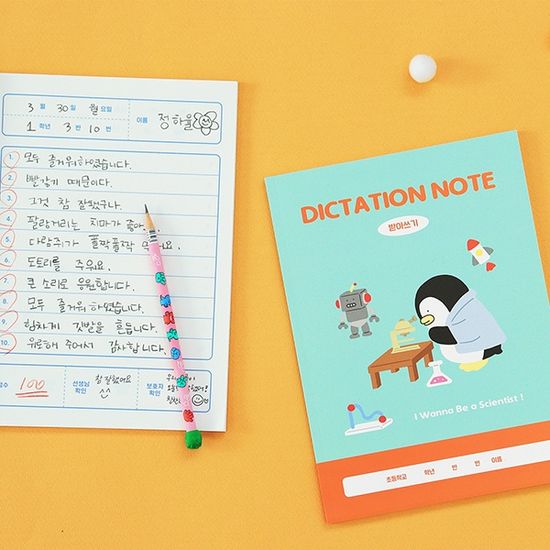 3 월 30 일 월 요일 이름 정하율
1 학년 3 반 10 번
1. 모두 즐거워하였습니다.
2. 빨갛기 때문이다.
3. 그것 참 잘됐구나.
4. 팔랑거리는 치마가 좋아
5. 다람쥐가 폴짝폴짝
6. 도토리를 주워요.
7. 큰 소리로 응원합니다.
8. 모두 즐거워하였습니다.
9. 힘차게 깃발을 흔듭니다.
10. 위로해 주어서 감사합니다.
점수 100 선생님 확인 참 잘했어요 ^^ 보호자 확인
DICTATION NOTE
받아쓰기
I Wanna Be a Scientist !
초등학교 학년 반 번 이름